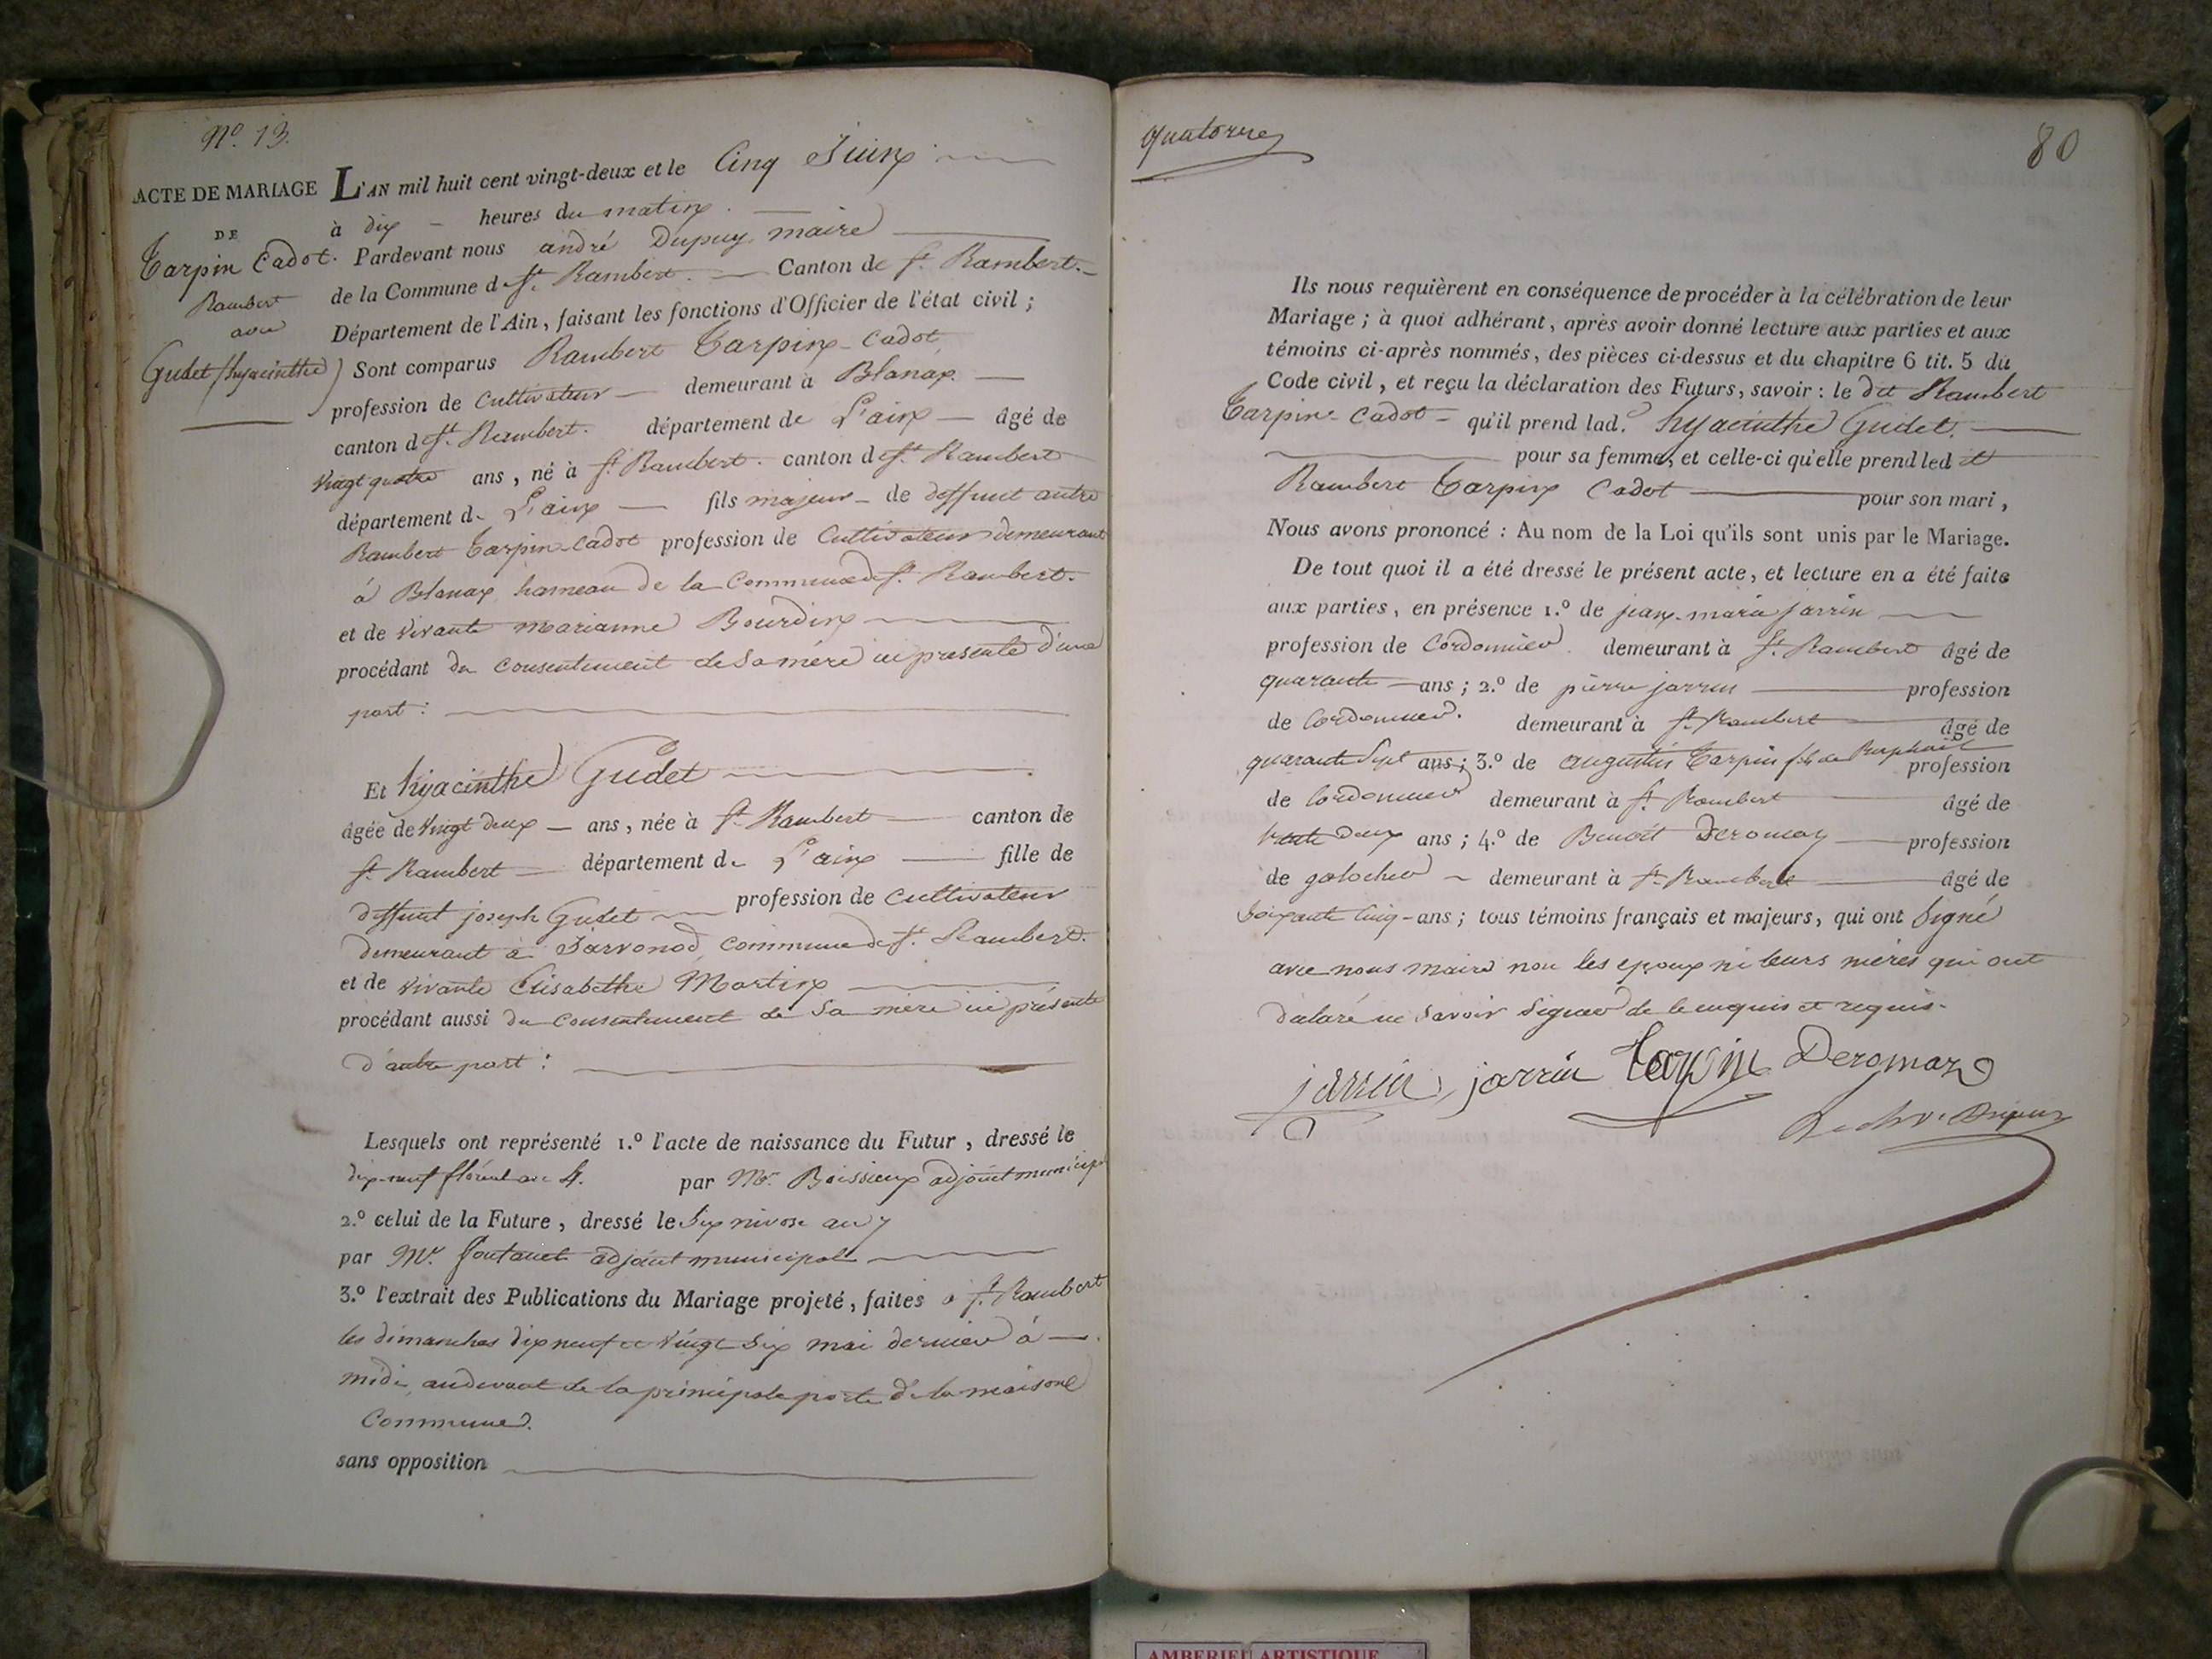 N.º 13.
ACTE DE MARIAGE
DE
Tarpin Cadot.
Rambert
avec
Gudet (hyacinthe)
L'AN mil huit cent vingt-deux et le Cinq Juin
à dix heures du matin.
Pardevant nous andré Dupuy maire
de la Commune de St. Rambert. Canton de St. Rambert.
Département de l'Ain, faisant les fonctions d'Officier de l'état civil ;
Sont comparus Rambert Tarpin-Cadot
profession de Cultivateur demeurant à Blanaz.
canton de St. Rambert. département de L'ain âgé de
vingt quatre ans, né à St. Rambert. canton de St. Rambert
département de L'ain fils majeur de deffunt autre
Rambert Tarpin-Cadot profession de Cultivateur demeurant
à Blanaz hameau de la Commune de St. Rambert.
et de vivante marianne Bourdin
procédant du consentement de sa mère ici presente d'une
part :
Et hyacinthe Gudet
âgée de vingt deux ans, née à St. Rambert canton de
St. Rambert département de L'ain fille de
deffunt joseph Gudet profession de Cultivateur
demeurant à Javornod, commune de St. Rambert.
et de vivante Elisabethe Martin
procédant aussi du consentement de sa mère ici présente
d'autre part :
Lesquels ont représenté 1.º l'acte de naissance du Futur, dressé le
dix-neuf floréal an 4. par Mr. Boissieux adjoint municipal
2.º celui de la Future, dressé le six nivose an 7
par Mr. fontanet adjoint municipal
3.º l'extrait des Publications du Mariage projeté, faites à St. Rambert
les dimanches dix neuf et vingt six mai dernier à
midi, audevant de la principale porte de la maison
Commune.
sans opposition
quatorze
80
Ils nous requièrent en conséquence de procéder à la célébration de leur
Mariage ; à quoi adhérant, après avoir donné lecture aux parties et aux
témoins ci-après nommés, des pièces ci-dessus et du chapitre 6 tit. 5 du
Code civil, et reçu la déclaration des Futurs, savoir : le dit Rambert
Tarpin-Cadot qu'il prend lad.e hyacinthe Gudet.
pour sa femme, et celle-ci qu'elle prend led it
Rambert Tarpin Cadot pour son mari,
Nous avons prononcé : Au nom de la Loi qu'ils sont unis par le Mariage.
De tout quoi il a été dressé le présent acte, et lecture en a été faite
aux parties, en présence 1.º de jean-marie jarrin
profession de Cordonnier demeurant à St. Rambert âgé de
quarante ans ; 2.º de pierre jarrin profession
de Cordonnier. demeurant à St. Rambert âgé de
quarante sept ans ; 3.º de augustin Tarpin fils de Raphaël profession
de Cordonnier demeurant à St. Rambert âgé de
trente deux ans ; 4.º de Benoît Deromay profession
de galochier demeurant à St. Rambert âgé de
soixante cinq ans ; tous témoins français et majeurs, qui ont Signé
avec nous maire non les epoux ni leurs mères qui ont
déclaré ne savoir signer de ce enquis et requis.
jarrin jarrin tarpin Deromay
Dupuy
AMBERIEU ARTISTIQUE